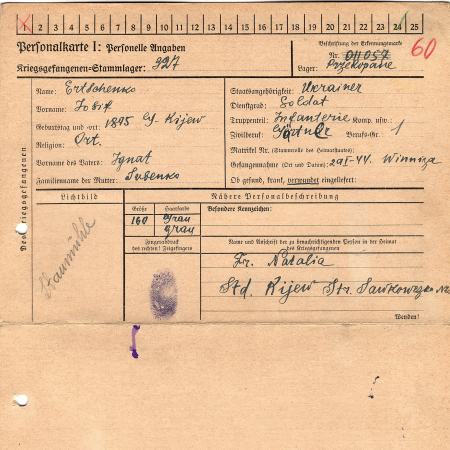 1 2 3 4 5 6 7 8 9 10 11 12 13 14 15 16 17 18 19 20 21 22 23 24 25
Personalkarte I: Personelle Angaben
Kriegsgefangenen-Stammlager: 327
Beschriftung der Erkennungsmarke
Nr. 011057
Lager: Przekopane
60
Des Kriegsgefangenen
Name: Ertschenko
Vorname: Josif
Geburtstag und -ort: 1895 Kijew
Religion: Ort.
Vorname des Vaters: Ignat
Familienname der Mutter:
Staatsangehörigkeit: Ukrainer
Dienstgrad: Soldat
Truppenteil: Infanterie Komp. usw.:
Zivilberuf: Gärtner Berufs-Gr. 1
Matrikel Nr. (Stammrolle des Heimatstaates):
Gefangennahme (Ort und Datum): 29 I-44. Winniza
Ob gesund, krank, verwundet eingeliefert:
Lichtbild
Nähere Personalbeschreibung
Größe
Haarfarbe
Besondere Kennzeichen:
160
Grau
grau
Fingerabdruck
des rechten! Zeigefingers
Name und Anschrift der zu benachrichtigenden Person in der Heimat
des Kriegsgefangenen
Fr. Natalia
Std. Kijew Str.
Wenden!